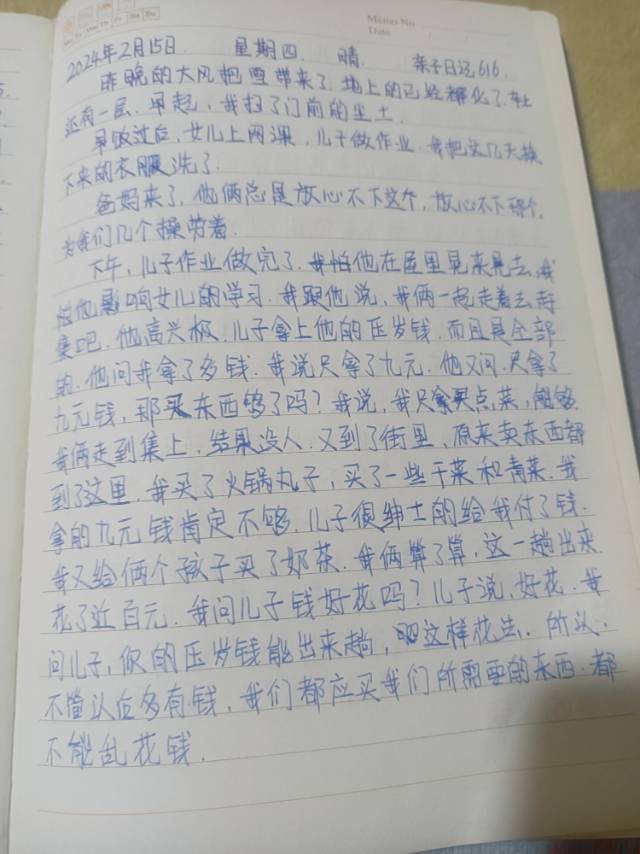 Memo No.
Date
Mo Tu We Th Fr Sa Su
2024年2月15日. 星期四. 晴. 亲子日记616.
昨晚的大风把雪带来了. 地上的已经都化了. 车上
还有一层. 早起, 我扫了门前的尘土.
早饭过后, 女儿上网课, 儿子做作业. 我把这几天换
下来的衣服洗了.
爸妈来了, 他俩总是放心不下这个, 放心不下那个,
为我们几个操劳着.
下午, 儿子作业做完了. 他在屋里晃来晃去, 我
怕他影响女儿的学习. 我跟他说, 我俩一起走着去赶
集吧. 他高兴极, 儿子拿上他的压岁钱. 而且是全部
的. 他问我拿了多钱. 我说只拿了九元. 他又问. 只拿了
九元钱, 那买东西够了吗? 我说, 我只买点菜, 能够
我俩走到集上, 结果没人. 又到了街里, 原来卖东西都
到了这里. 我买了火锅丸子, 买了一些干菜和青菜. 我
拿的九元钱肯定不够. 儿子很绅士的给我付了钱.
我又给俩个孩子买了奶茶. 我俩算了算, 这一趟出来
花了近百元. 我问儿子钱好花吗? 儿子说, 好花. 我
问儿子, 你的压岁钱能出来趟, 这样花法. 所以,
不管认位多有钱, 我们都应买我们所需要的东西. 都
不能乱花钱.